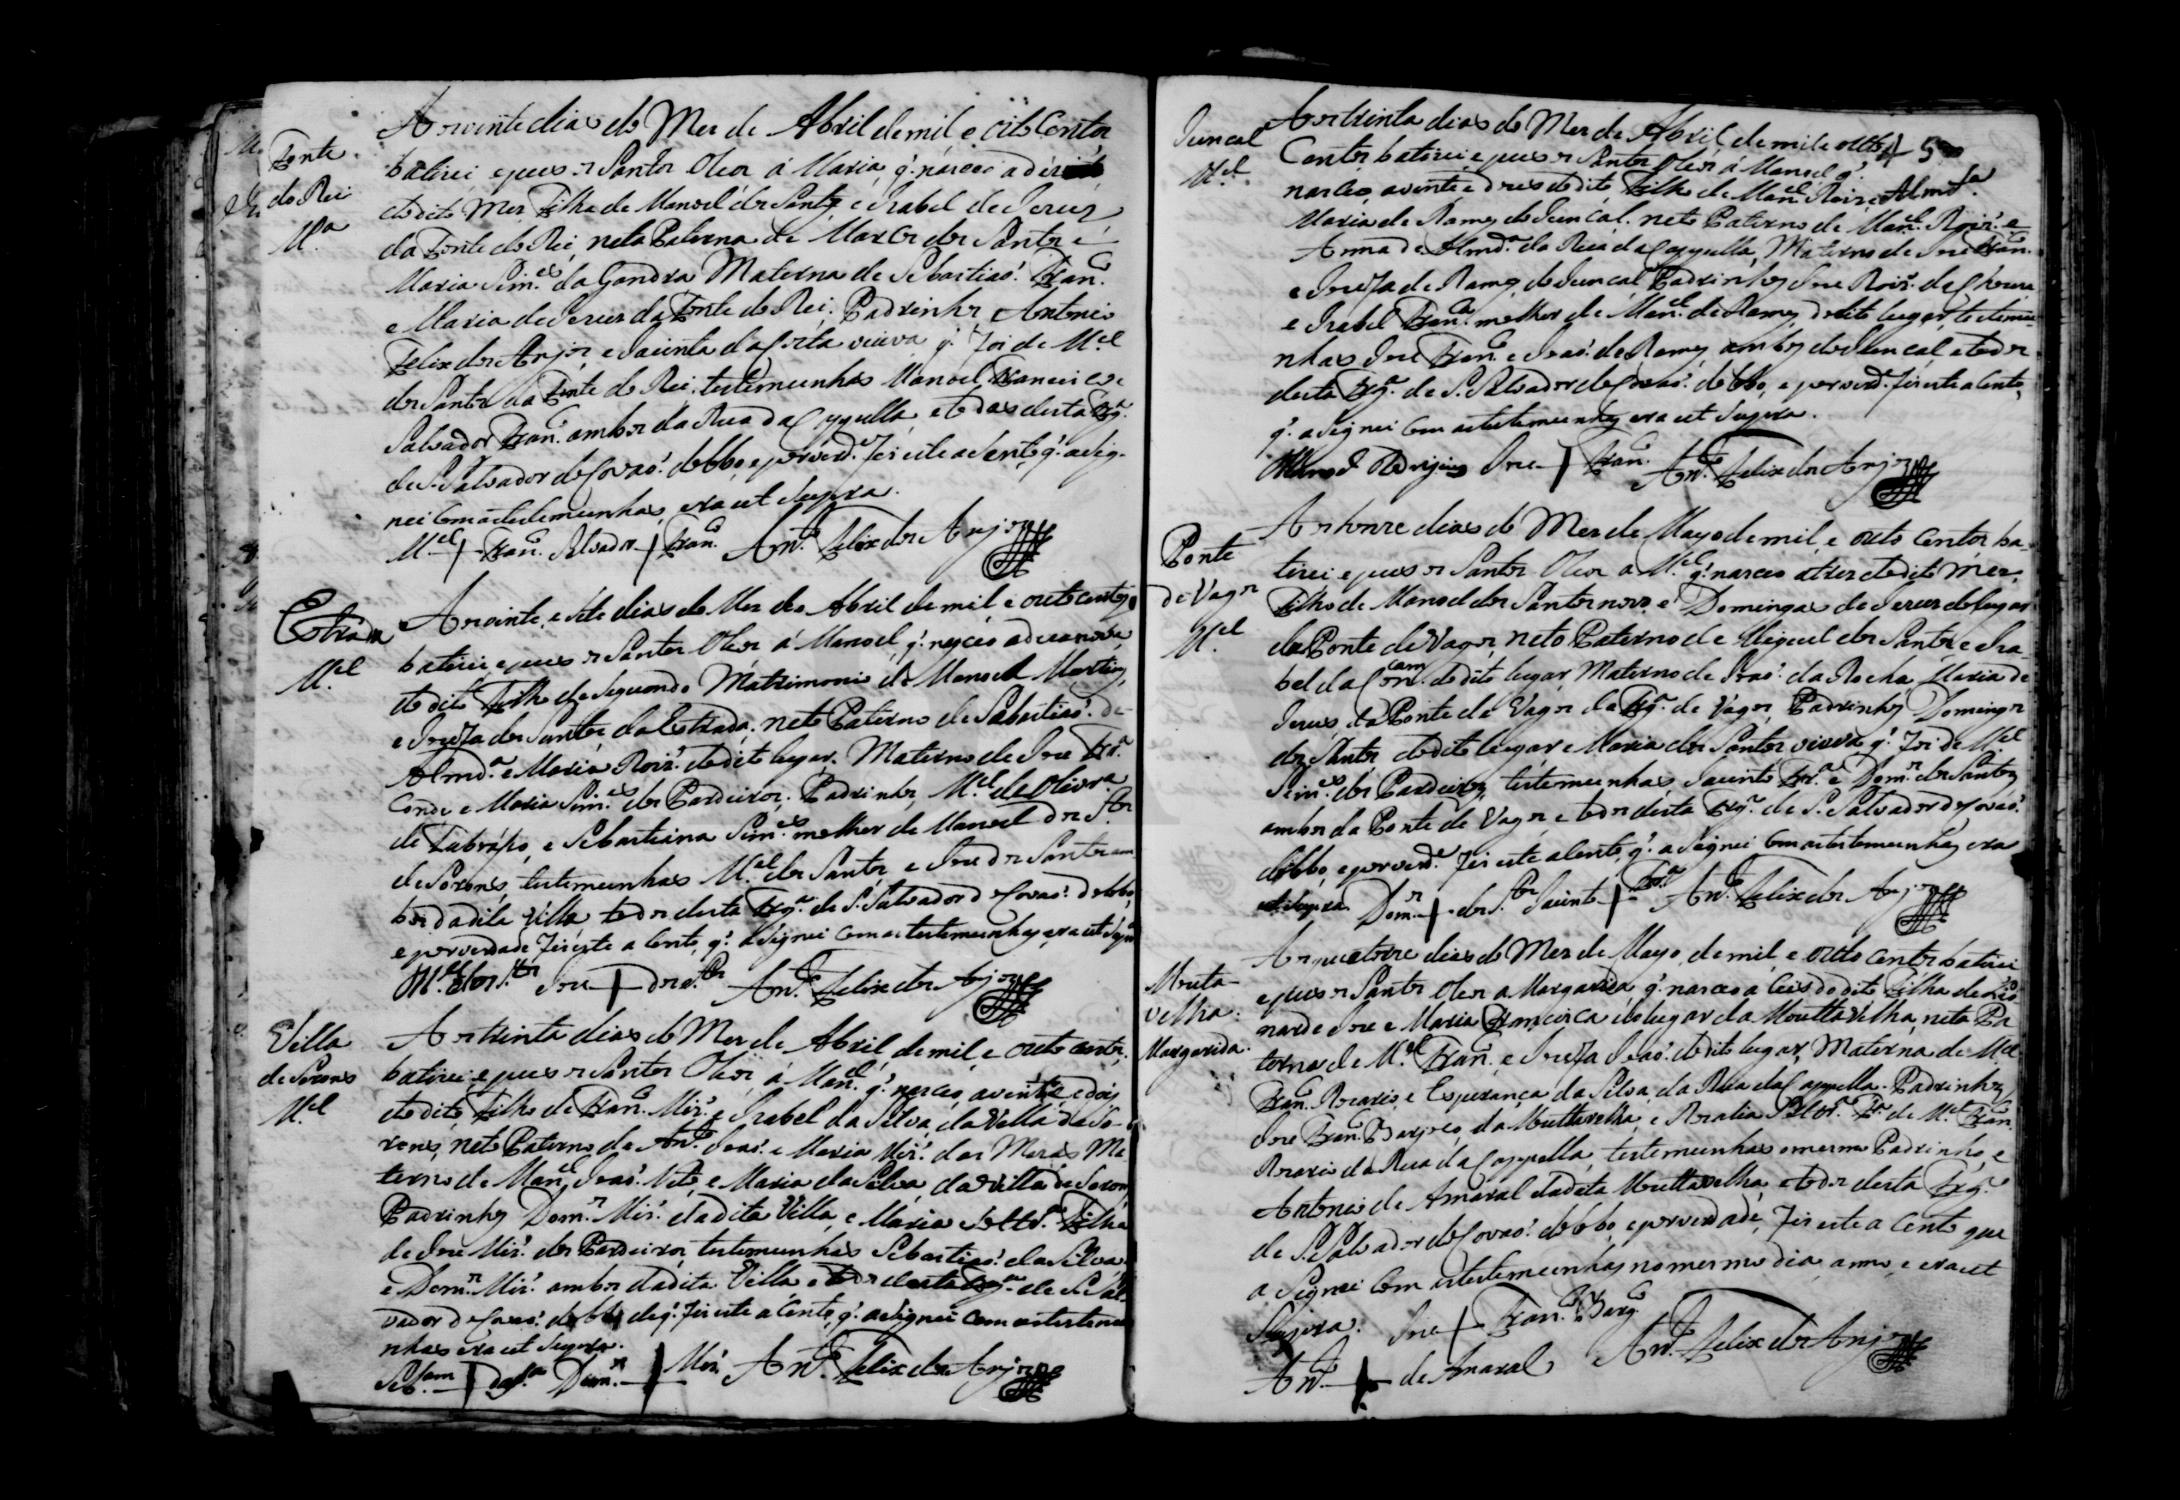 Fonte
do Rei
M.ª
Aos vinte dias do Mes de Abril de mil e oito Centos
batizei e pus os Santos Oleos á Maria q̃ nasceo a
do dito Mes Filha de Manoel dos Santos e Izabel de Jesus
da Fonte do Rei, neta Paterna de Marcos dos Santos e
Maria Sim.es da Gandra Materna de Sebastiaõ Fran.co
e Maria de Jesus da Fonte do Rei, Padrinhos Antonio
Felix dos Anjos e Jacinta da Costa viuva q̃ foi de M.el
dos Santos da Fonte do Rei, testemunhas Manoel Francisco
Salvador Fran.co ambos da Rua da Cappella, e todas desta Frg.ª
de S. Salvador de Covaõ do Lobo, e por verd.e fis este acento, q̃ asig-
nei com as testemunhas, era ut supra.
M.el + Fran.co Salvador + Fran.co Ant.º Felix dos Anjos
Estrada
M.el
Aos vinte, e sete dias do Mes de Abril de mil e outo centos
batizei e pus os Santos Oleos á Manoel, q̃ nasceo a dezanove
do dito Filho de Segundo Matrimonio de Manoel Martins,
e Jozefa dos Santos da Estrada, neto Paterno de Sabastiaõ de
Almd.ª e Maria Roiz do dito lugar. Materno de Joze Fr.ª
Conde e Maria Sim.es dos Cardeiros. Padrinhos M.el de Olivr.ª
de e Sebastiana Sim.es molher de Manoel dos S.tos
de Sorens, testemunhas M.el dos Santos e Joze dos Santos am-
bos da dita Villa todos desta Frg.ª de S. Salvador de Covaõ do Lobo,
e por verdade fis este acento, q̃ asignei com as testemunhas, era ut supra
M.el dos S.tos Joze + dos S.tos Ant.º Felix dos Anjos
Villa
de Sorens
M.el
Aos trinta dias do Mes de Abril de mil, e outo centos,
batizei e pus os Santos Oleos á Man.el q̃ nasceo a vinte e dois
do dito, Filho de Fran.co Miz e Izabel da Silva, da Villa de So-
rens, neto Paterno de Ant.º Joaõ e Maria Miz das Mesas Ma-
terno de Man.el Joaõ Neto, e Maria da Silva da Villa de Sorens,
Padrinhos Dom.os Miz da dita Villa, e Maria Soltr.ª Filha
de Joze Miz dos Cardeiros, testemunhas Sebastiaõ da Silva
e Dom.os Miz ambos da dita Villa, e todos desta Frg.ª de S. Sal-
vador de Covaõ do Lobo de q̃ fis este acento, q̃ asignei com as testemu-
nhas era ut supra.
Seb.am + da S.ª Dom.os + Miz Ant.º Felix dos Anjos
45
Juncal
M.el
Aos trinta dias do Mes de Abril, de mil e outo
Centos batizei e pus os Santos Oleos á Manoel q̃
nasceo, a vinte e tres do dito, Filho de Man.el Roiz Almd.ª
Maria de Ramos do Juncal. neto Paterno de Man.el Roiz e
Anna de Almd.ª da Rua da Cappella, Materno de Joze Fran.co
e Jozefa de Ramos, do Juncal Padrinhos Joze Roiz da
e Izabel Fran.ca molher de Man.el de Ramos do dito lugar, testemu-
nhas Joze Fran.co e Joaõ de Ramos ambos do Juncal e todos
desta Frg.ª de S. Salvador de Covaõ do Lobo, e por verd.e fis este acento,
q̃ asignei com as testemunhas era ut supra.
Manoel Rodrigues Joze + Fran.co Ant.º Felix dos Anjos
Ponte
de Vagos
M.el
Aos honze dias do Mes de Mayo de mil, e outo centos ba-
tizei e pus os Santos Oleos a M.el q̃ nasceo a tres do dito Mes,
Filho de Manoel dos Santos novo, e Domingas de Jesus do lugar
da Ponte de Vagos, neto Paterno de Miguel dos Santos e Iza-
bel da do dito lugar Materno de Joaõ da Rocha, Maria de
Jesus, da Ponte de Vagos da Frg.ª de Vagos, Padrinhos Domingos
dos Santos do dito lugar e Maria dos Santos viuva q̃ foi de M.el
Sim.es dos Cardeiros, testemunhas, Jacinto Fr.ª e Dom.os dos Santos
ambos da Ponte de Vagos e todos desta Frg.ª de S. Salvador de Covaõ
do Lobo, e por verd.e fis este acento, q̃ asignei com as testemunhas era
ut supra. Dom.os + dos S.tos Jacinto + Fr.ª Ant.º Felix dos Anjos
Mouta-
velha.
Margarida.
Aos quatorze dias do Mes de Mayo, de mil e outo centos batizei
e pus os Santos Oleos a Margarida q̃ nasceo a seis do dito Filha de Lio-
nardo Joze e Maria Francisca do lugar da Moutta velha, neta Pa-
terna de M.el Fran.co e Jozefa Joaõ do dito lugar, Materna de M.el
Fran.co Rozario, e Esperança da Silva, da Rua da Cappella. Padrinhos
Joze Fran.co da Mouttavelha, e Rozalia Soltr.ª F.ª de M.el Fran.co
Rozario da Rua da Cappella, testemunhas o mesmo Padrinho e
Antonio de Amaral da dita Mouttavelha e todos desta Frg.ª
de S. Salvador de Covaõ do Lobo, e por verdade, fis este acento que
asignei com as testemunhas no mesmo dia, anno, e era ut
Supra. Joze + Fran.co
Ant.º + de Amaral Ant.º Felix dos Anjos